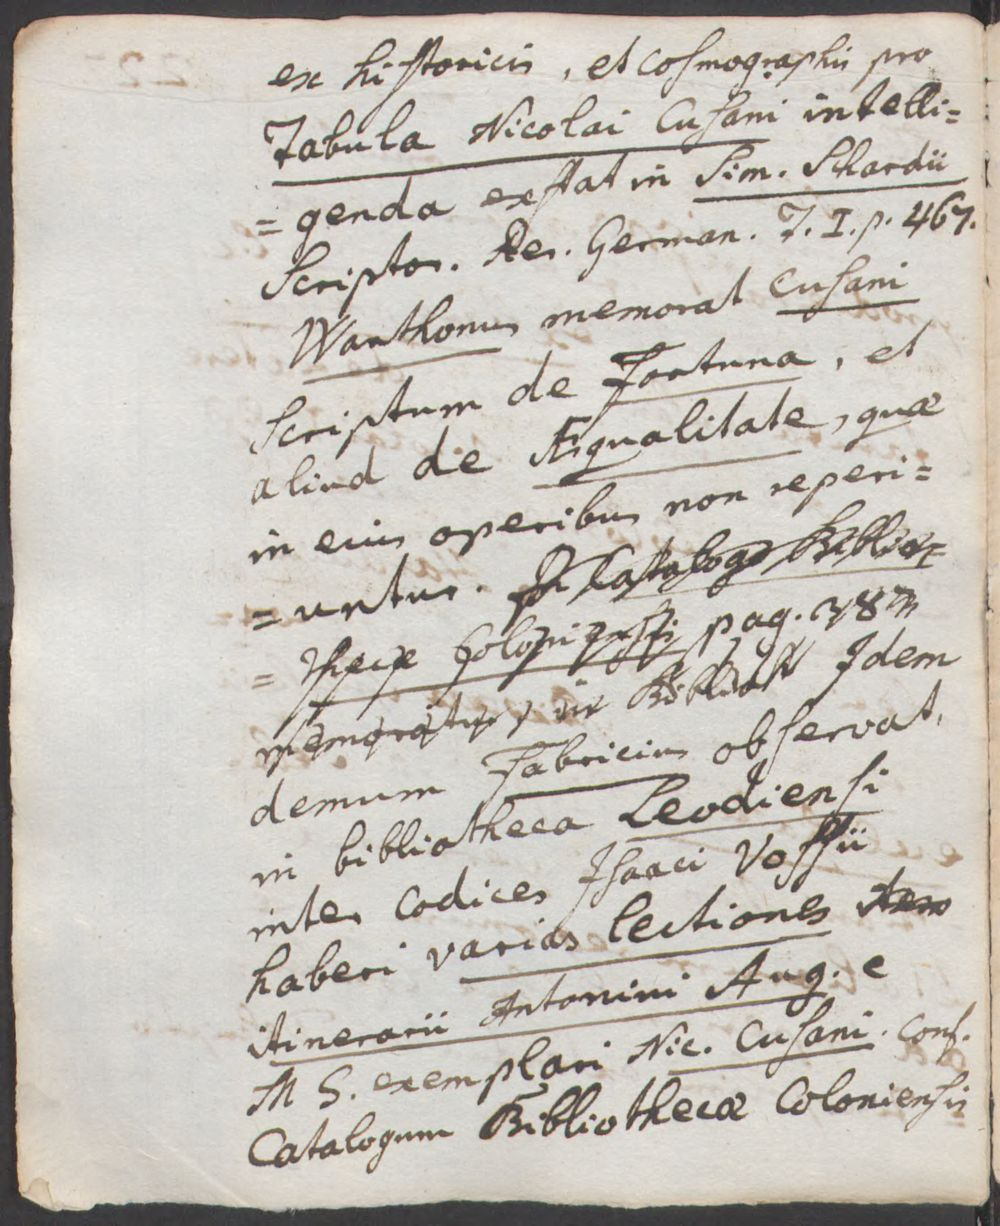 ex historicis, et cosmographis pro
Tabula Nicolai Cusani intelli=
=genda exstat in Sim. Schardii
Scriptor. Rer. German. T. I. p. 467.
Warthonus memorat Cusani
scriptum de Fortuna, et
aliud de Æqualitate, quæ
in eius operibus non reperi=
=untur. In Catalogo Biblio=
=thecæ pag.
memoratur, in Idem
demum Fabricius observat,
in bibliotheca Leodiensi
inter Codices Isaaci Vossii
haberi varias lectiones
itinerarii Antonini Aug. e
M S. exemplari Nic. Cusani. Conf.
Catalogum Bibliothecæ Coloniensis